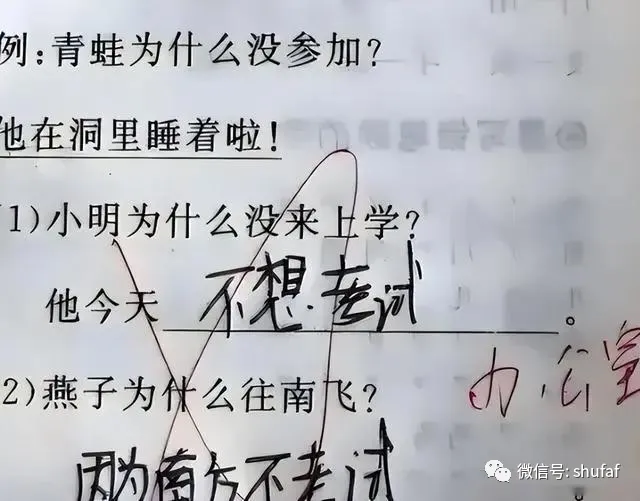 例:青蛙为什么没参加?
他在洞里睡着啦!
(1)小明为什么没来上学?
他今天 不想考试 。
办公室
2)燕子为什么往南飞?
因为南方不考试
微信号: shufaf